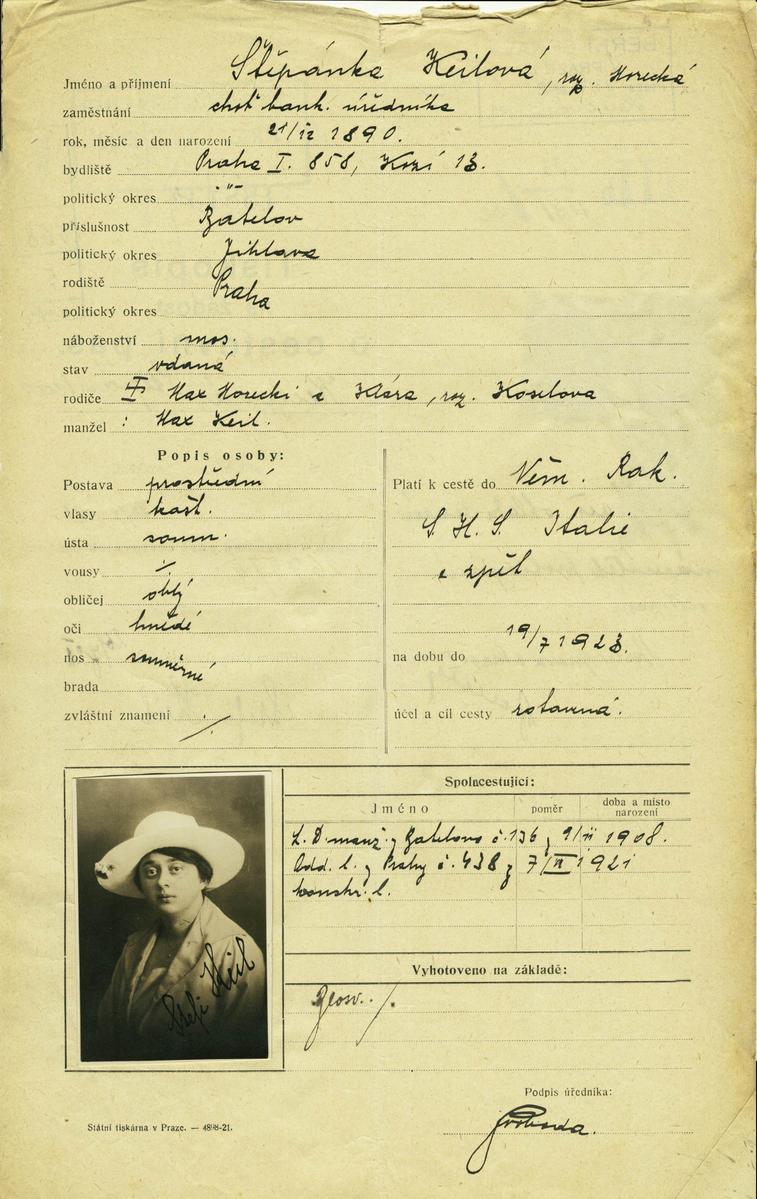 Jméno a příjmení Štěpánka Keilová, roz. Horecká
zaměstnání choť bank. úředníka
rok, měsíc a den narození 21/IX 1890.
bydliště Praha I. 858, Kozí 13.
politický okres -"-
příslušnost Batelov
politický okres Jihlava
rodiště Praha
politický okres
náboženství mos.
stav vdaná
rodiče Max Horecki a Klára, roz. Koselova
manžel : Max Keil.
Popis osoby:
Postava prostřední
vlasy kašt.
ústa soum.
vousy ./.
obličej oblý
oči hnědé
nos souměrné
brada
zvláštní znamení ./.
Platí k cestě do Něm. Rak.
S. H. S. Italie
a zpět
na dobu do 19/7 1923.
účel a cíl cesty zotavená.
Spolucestující:
Jméno poměr doba a místo narození
L. D. manž. z Batelova č. 136 z 9/II 1908.
Odd. l. z Prahy č. 438 z 7/II 1921
l.
Vyhotoveno na základě:
Stefi Keil
Podpis úředníka:
Svoboda.
Státní tiskárna v Praze. — 4898-21.